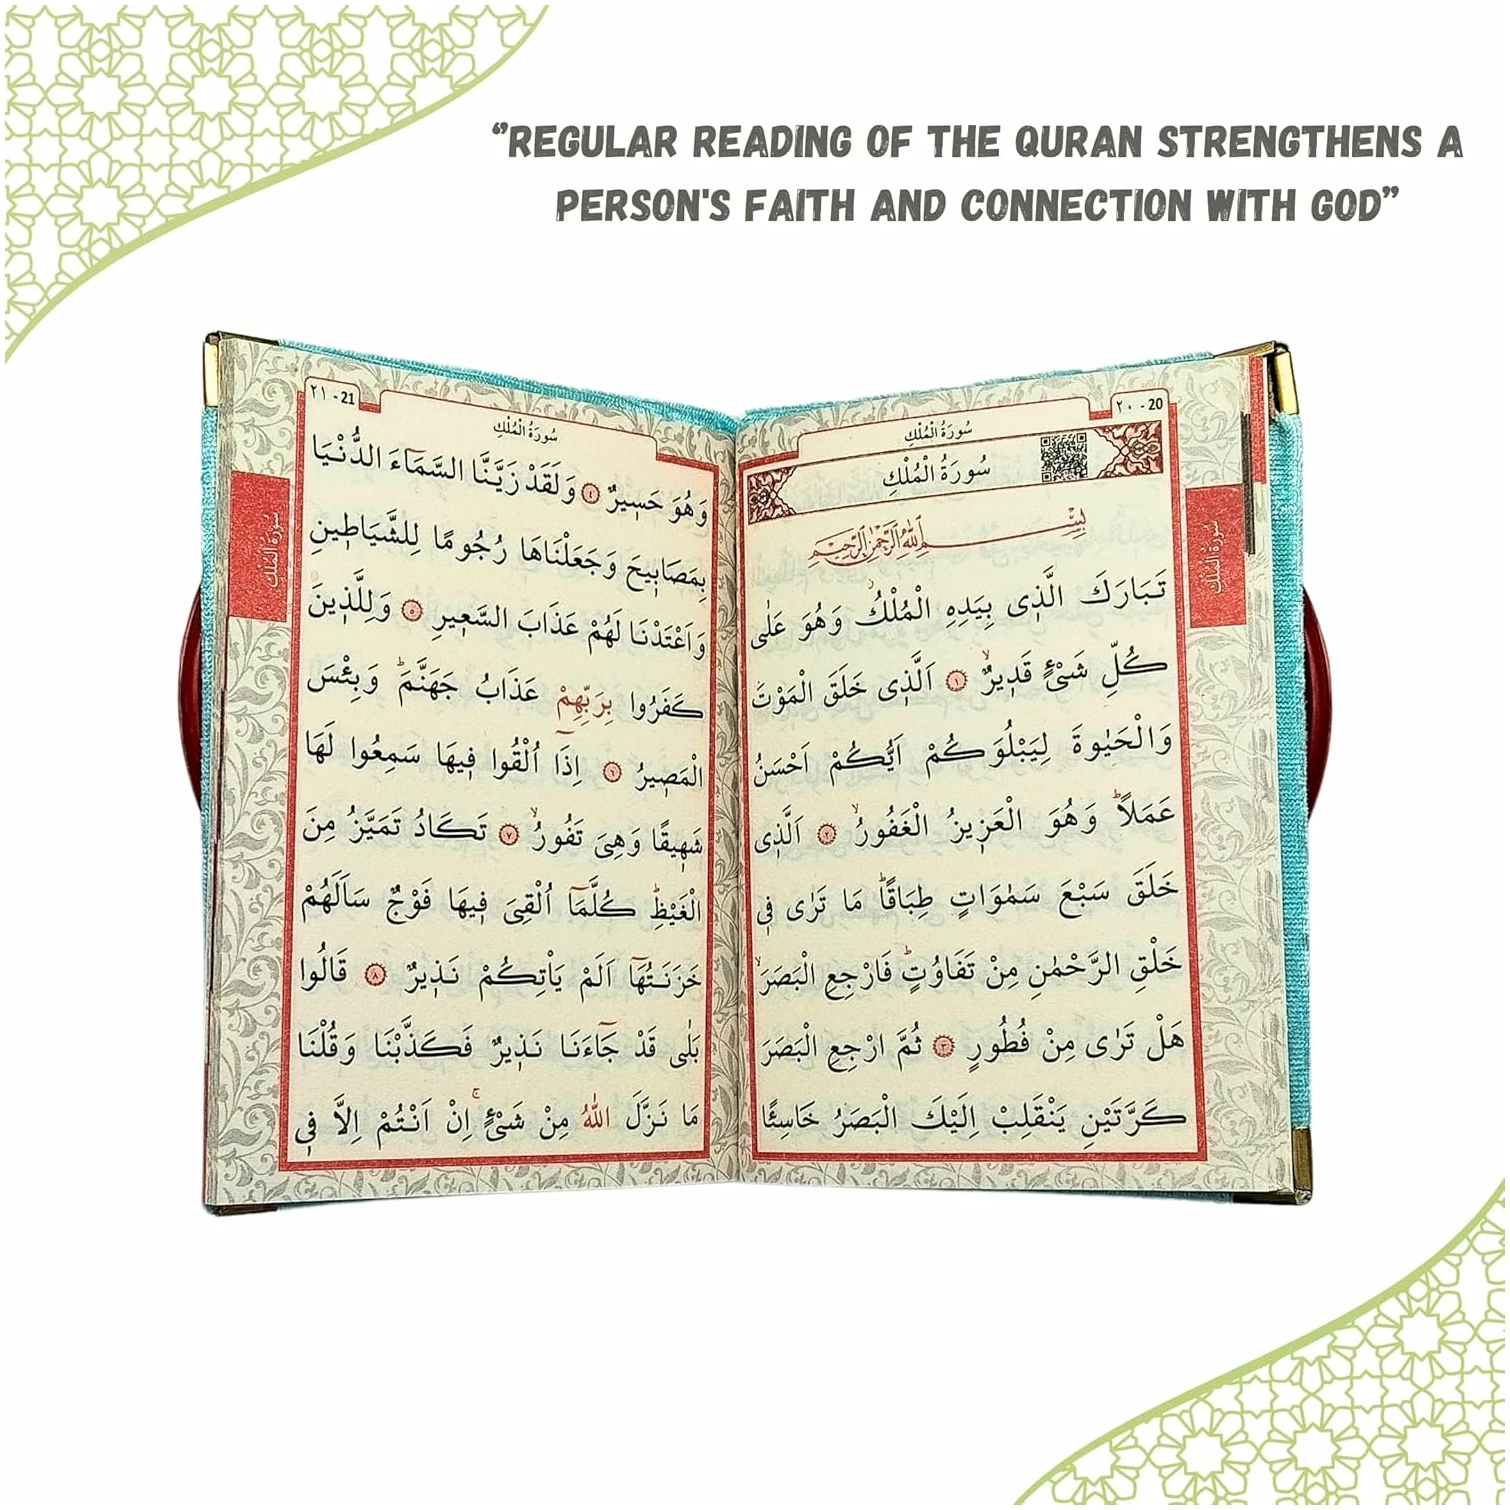 ‘’REGULAR READING OF THE QURAN STRENGTHENS A
PERSON'S FAITH AND CONNECTION WITH GOD”
٢٠ - 20
سُورَةُ الْمُلْكِ
سُورَةُ الْمُلْكِ
سُورَةُ الْمُلْكِ
بِسْمِ اللّٰهِ الرَّحْمٰنِ الرَّحِيمِ
تَبَارَكَ الَّذٖى بِيَدِهِ الْمُلْكُۘ وَهُوَ عَلٰى
كُلِّ شَىْءٍ قَدٖيرٌۙ ﴿١﴾ اَلَّذٖى خَلَقَ الْمَوْتَ
وَالْحَيٰوةَ لِيَبْلُوَكُمْ اَيُّكُمْ اَحْسَنُ
عَمَلًاؕ وَهُوَ الْعَزٖيزُ الْغَفُورُۙ ﴿٢﴾ اَلَّذٖى
خَلَقَ سَبْعَ سَمٰوَاتٍ طِبَاقًاؕ مَا تَرٰى فٖى
خَلْقِ الرَّحْمٰنِ مِنْ تَفَاوُتٍؕ فَارْجِعِ الْبَصَرَۙ
هَلْ تَرٰى مِنْ فُطُورٍ ﴿٣﴾ ثُمَّ ارْجِعِ الْبَصَرَ
كَرَّتَيْنِ يَنْقَلِبْ اِلَيْكَ الْبَصَرُ خَاسِئًا
٢١ - 21
سُورَةُ الْمُلْكِ
سُورَةُ الْمُلْكِ
وَهُوَ حَسٖيرٌ ﴿٤﴾ وَلَقَدْ زَيَّنَّا السَّمَٓاءَ الدُّنْيَا
بِمَصَابٖيحَ وَجَعَلْنَاهَا رُجُومًا لِلشَّيَاطٖينِ
وَاَعْتَدْنَا لَهُمْ عَذَابَ السَّعٖيرِ ﴿٥﴾ وَلِلَّذٖينَ
كَفَرُوا بِرَبِّهِمْ عَذَابُ جَهَنَّمَؕ وَبِئْسَ
الْمَصٖيرُ ﴿٦﴾ اِذَٓا اُلْقُوا فٖيهَا سَمِعُوا لَهَا
شَهٖيقًا وَهِىَ تَفُورُۙ ﴿٧﴾ تَكَادُ تَمَيَّزُ مِنَ
الْغَيْظِؕ كُلَّمَٓا اُلْقِىَ فٖيهَا فَوْجٌ سَاَلَهُمْ
خَزَنَتُهَٓا اَلَمْ يَاْتِكُمْ نَذٖيرٌ ﴿٨﴾ قَالُوا
بَلٰى قَدْ جَٓاءَنَا نَذٖيرٌ فَكَذَّبْنَا وَقُلْنَا
مَا نَزَّلَ اللّٰهُ مِنْ شَىْءٍۚ اِنْ اَنْتُمْ اِلَّا فٖى